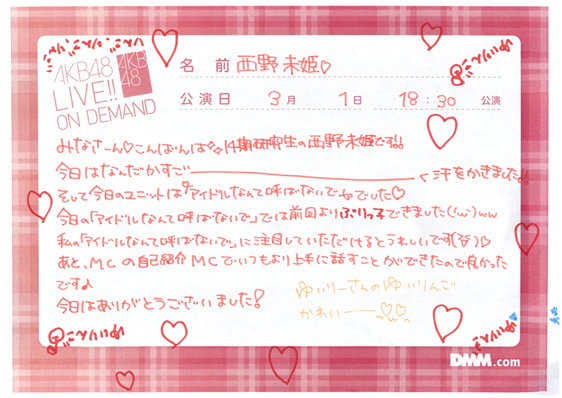 AKB48
LIVE!!
ON DEMAND
AKB
48
名 前 西野 未姫♡
公演日 3月 1日 18:30 公演
みなさーん♡こんばんは☆14期研究生の西野未姫です!!
今日はなんだかすご――――――く汗をかきました!!
そして今日のユニットは"アイドルなんて呼ばないで"でした♡
今日の「アイドルなんて呼ばないで」では前回よりぶりっ子できました(・ω・)ww
私の「アイドルなんて呼ばないで」に注目していただけるとうれしいです(≧∀≦)♡
あと、MCの自己紹介MCでいつもより上手に話すことができたので良かった
です♪
今日はありがとうございました!
ゆいりーさんのゆいりんご
かわいー――♡♡
DMM.com